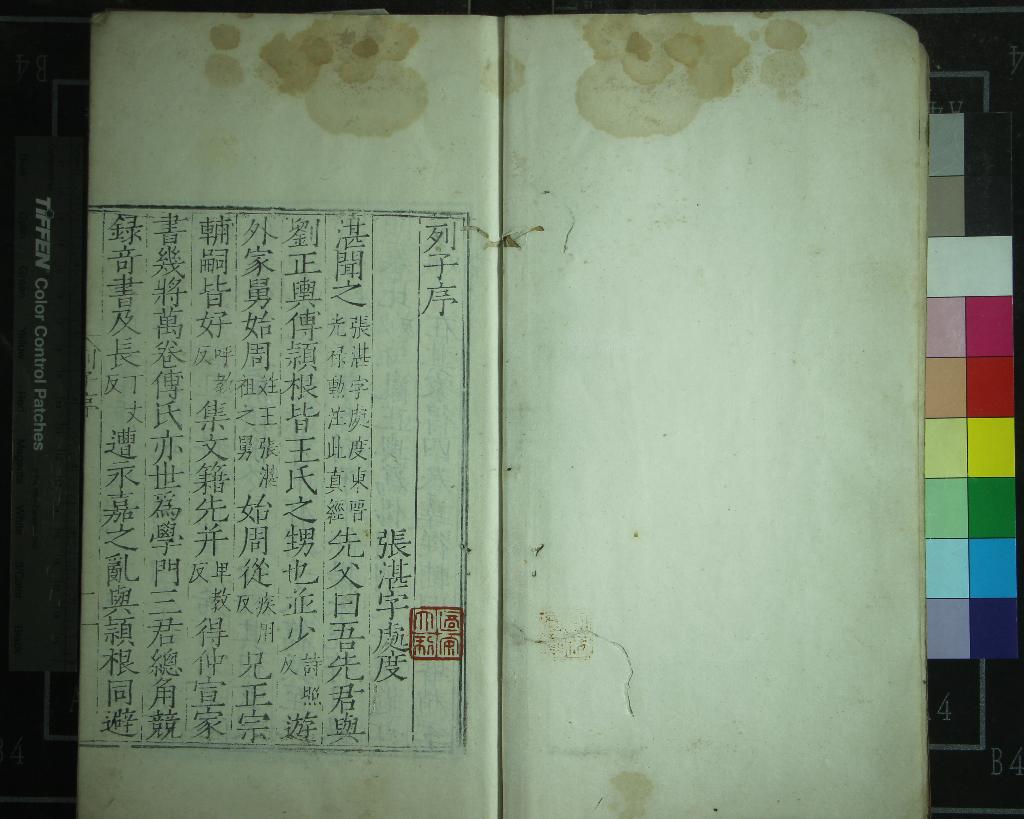 列子序
張湛字處度
湛聞之張湛字處度東晉光禄勳注此真經先父曰吾先君與
劉正輿傅穎根皆王氏之甥也並少詩照反遊
外家舅始周姓王張湛祖之舅始周從疾用反兄正宗
輔嗣皆好呼教反集文籍先并卑教反得仲宣家
書幾將萬卷傅氏亦世爲學門三君總角競
録奇書及長丁丈反遭永嘉之亂與穎根同避
TIFFEN Color Control Patches
B4
A4
B4